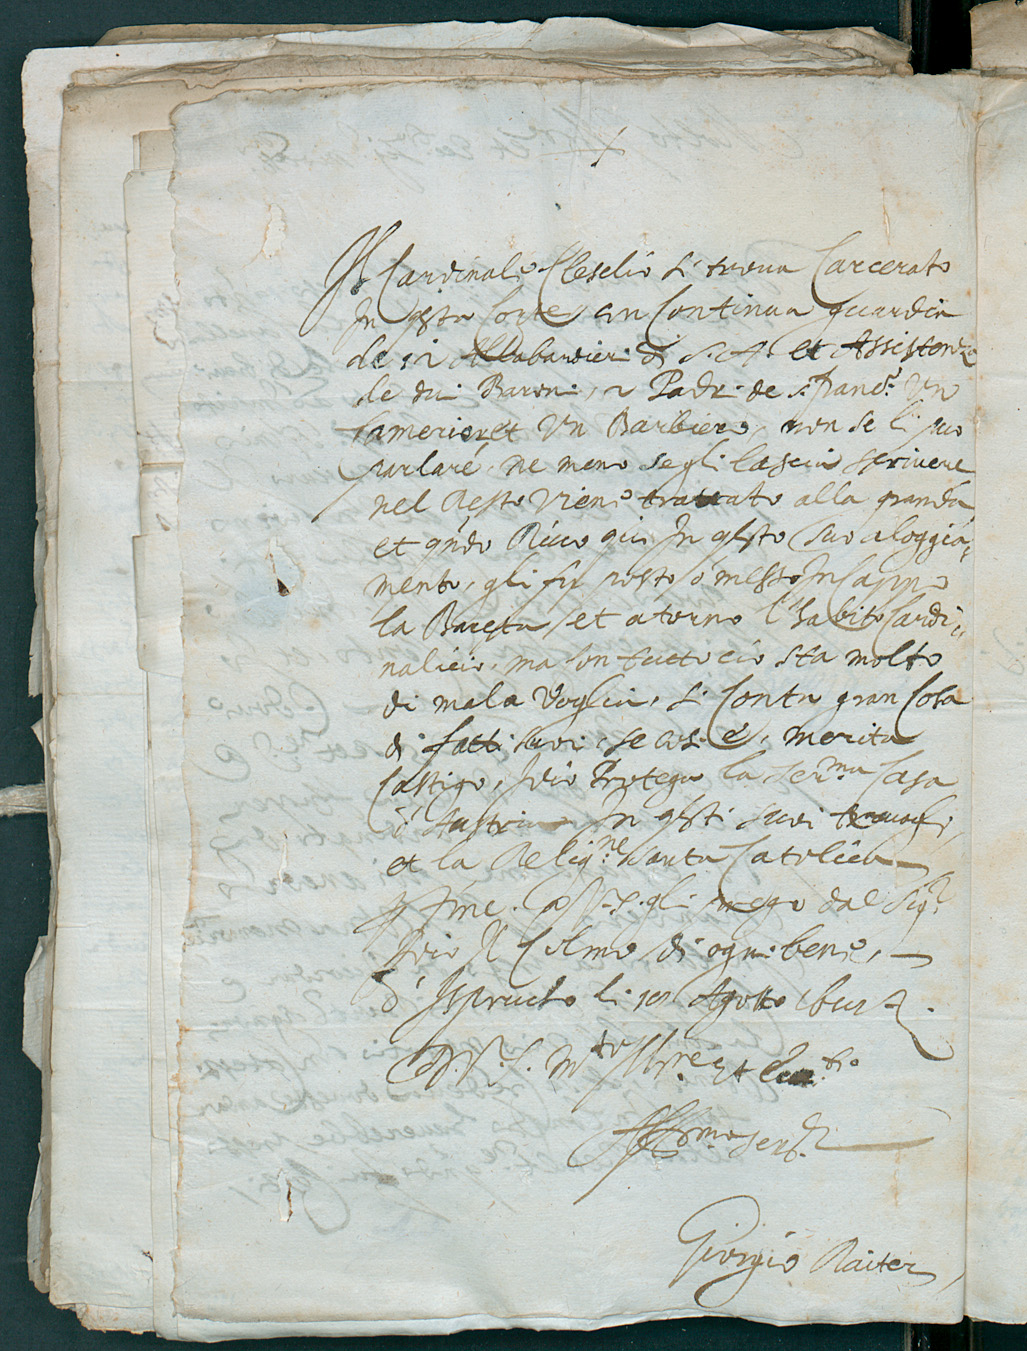 Il Cardinale Cleselio si trova Carcerato
In qsta Corte, con Continua guardia
de 12 Allabardieri di S. A. et Assistenza
de dui Baroni, 2 Padri de s. franc.º Un
Camerier, et Un Barbiero, non se li puo
parlare, ne meno segli lascia scrivere
nel Resto Viene trattato alla granda,
et qndo Rivo qui In qsto suo aloggia,
mento, gli fu posto o messo In Cappo
la Bareta, et atorno l'habito Cardi,,
nalicio, ma con tutto cio sta molto
di mala Voglia, si Conta gran Cosa
di fatti suoi, se cosi è, merita
Castigo, Idio Protega la Ser.ma Casa
d'Austria In qsti suoi
et la Relig.ne Santa Catolica
fine. a V. S. gli prego dal Sig.r
Idio Il Colmo di ogni bene,
d'Ispruch li Agosto
D. V. S. M.to Ill.re et
Aff.mo ser.r
Giorgio Raiter